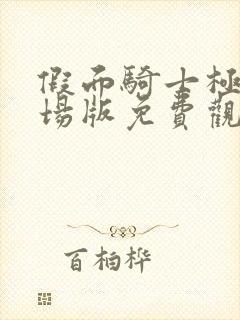 假面騎士極
場版免費觀
百柏桦